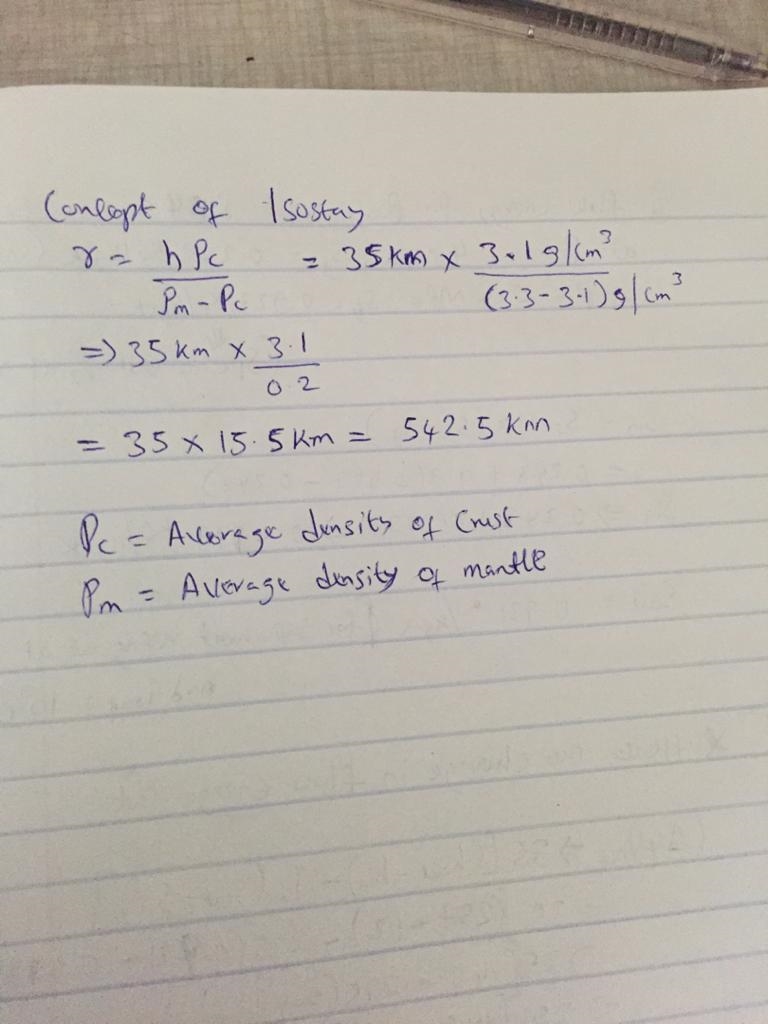 Concept of Isostay
r = h Pc / Pm - Pc = 35 km × 3.1 g/cm³ / (3.3 - 3.1) g/cm³
=) 35 km × 3.1 / 0.2
= 35 × 15.5 km = 542.5 km
Pc = Average density of Crust
Pm = Average density of mantle